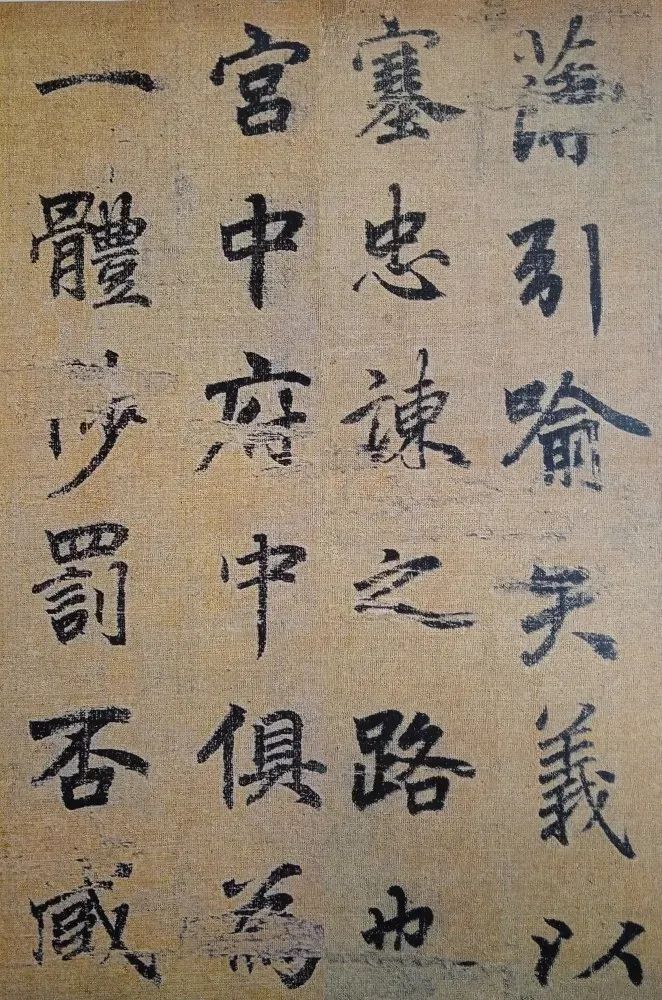 薄引喻失義以
塞忠諫之路也
宮中府中俱為
一體罰否臧